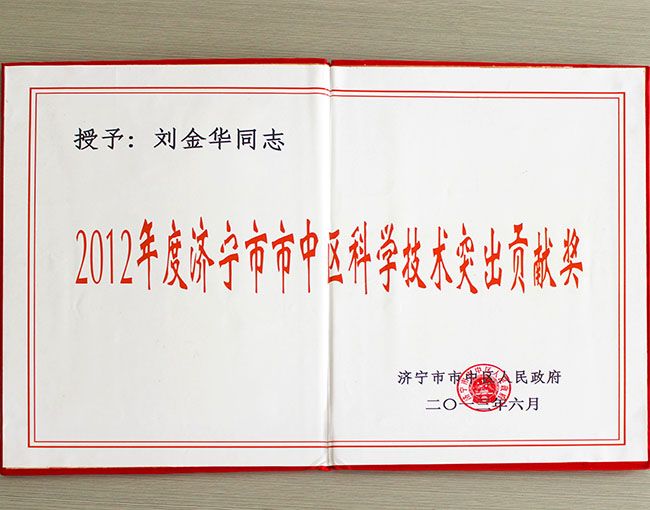 授予：刘金华同志
2012年度济宁市市中区科学技术突出贡献奖
济宁市市中区人民政府
二〇一二年六月